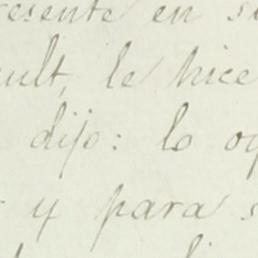 resente en s
cult, le hice
dijo: lo o
y para s